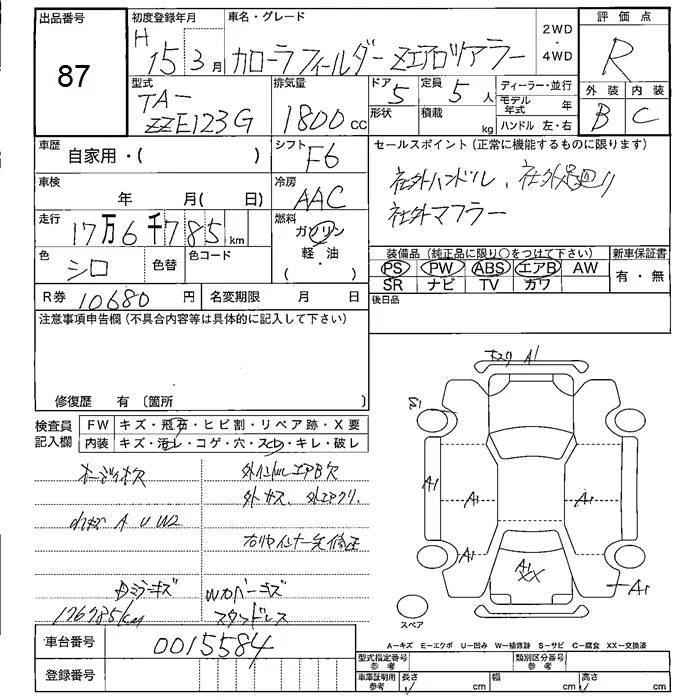 出品番号
87
初度登録年月
H
15 3月
車名・グレード
カローラフィールダーZエアロツアラー
2WD
・
4WD
評価点
R
外装 内装
B C
型式
TA-
ZZE123G
排気量
1800 cc
ドア
5
形状
定員
5 人
積載
kg
ディーラー・並行
モデル年式 年
ハンドル 左・右
車歴
自家用・( )
シフト
F6
セールスポイント(正常に機能するものに限ります)
社外ハンドル、社外足回り
社外マフラー
車検
年 月( 日)
冷房
AAC
走行
17万6千785km
燃料
ガソリン
軽・油
( ・ )
色
シロ
色替
色コード
装備品(純正品に限り○をつけて下さい)
PS PW ABS エアB AW
SR ナビ TV カワ
新車保証書
有・無
R券 10680 円
名変期限 月 日
後日品
注意事項申告欄(不具合内容等は具体的に記入して下さい)
修復歴 有〔箇所 〕
検査員
記入欄
FW キズ・飛石・ヒビ割・リペア跡・X要
内装 キズ・汚レ・コゲ・穴・スレ・キレ・破レ
オーディオス
外ハンドルエアB欠
A U W2
176785km
Wカバーキズ
スタッドレス
キズリ A1
A1
A1
A1
A1
A1
XX
A1
スペア
車台番号
0015584
登録番号
A=キズ E=エクボ U=凹み W=補修跡 S=サビ C=腐食 XX=交換済
型式指定番号
参考
類別区分番号
参考
車庫証明用
参考
長さ cm
幅 cm
高さ cm